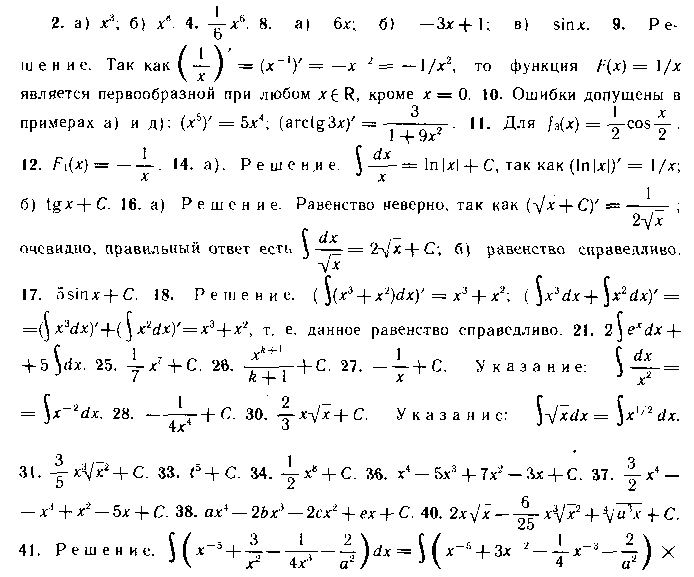 2. а) x³; б) x⁶. 4. 1/6 x⁶. 8. а) 6x; б) −3x+1; в) sinx. 9. Ре-
шение. Так как (1/x)′ = (x⁻¹)′ = −x⁻² = −1/x², то функция F(x) = 1/x
является первообразной при любом x∈R, кроме x = 0. 10. Ошибки допущены в
примерах а) и д): (x⁵)′ = 5x⁴; (arctg3x)′ = 3/(1+9x²). 11. Для f₃(x) = 1/2 cos x/2.
12. F₁(x) = −1/x. 14. а). Решение. ∫dx/x = ln|x| + C, так как (ln|x|)′ = 1/x;
б) tgx + C. 16. а) Решение. Равенство неверно, так как (√x + C)′ = 1/(2√x);
очевидно, правильный ответ есть ∫dx/√x = 2√x + C; б) равенство справедливо.
17. 5sinx + C. 18. Решение. (∫(x³ + x²)dx)′ = x³ + x²; (∫x³dx + ∫x²dx)′ =
=(∫x³dx)′+(∫x²dx)′=x³+x², т. е. данное равенство справедливо. 21. 2∫eˣdx +
+ 5∫dx. 25. 1/7 x⁷ + C. 26. xᵏ⁺¹/(k+1) + C. 27. −1/x + C. Указание: ∫dx/x² =
= ∫x⁻²dx. 28. −1/(4x⁴) + C. 30. 2/3 x√x + C. Указание: ∫√xdx = ∫x^(1/2) dx.
31. 3/5 x∛x² + C. 33. t⁵ + C. 34. 1/2 x⁸ + C. 36. x⁴ − 5x³ + 7x² − 3x + C. 37. 3/2 x⁴ −
− x³ + x² − 5x + C. 38. ax⁴ − 2bx³ − 2cx² + ex + C. 40. 2x√x − 6/25 x∛x² + ∜a³x + C.
41. Решение. ∫(x⁻⁵ + 3/x² − 1/(4x³) − 2/a²)dx = ∫(x⁻⁵ + 3x⁻² − 1/4 x⁻³ − 2/a²) ×